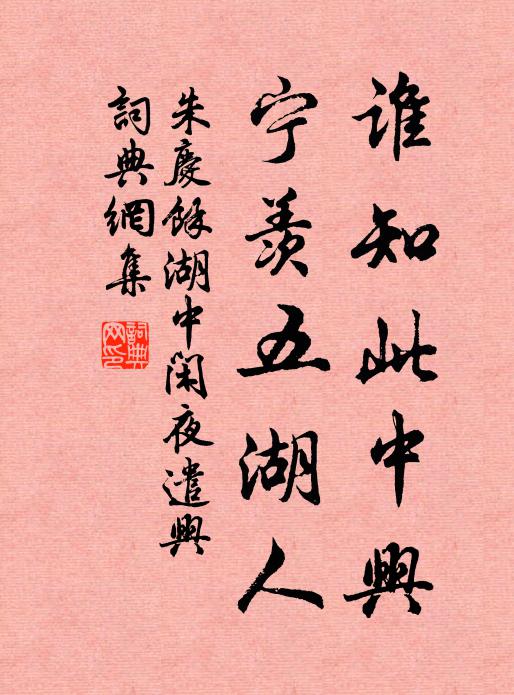 谁知此中興
宁羨五湖人
朱慶餘湖中閑夜遣興
詞典網集
詞典网印